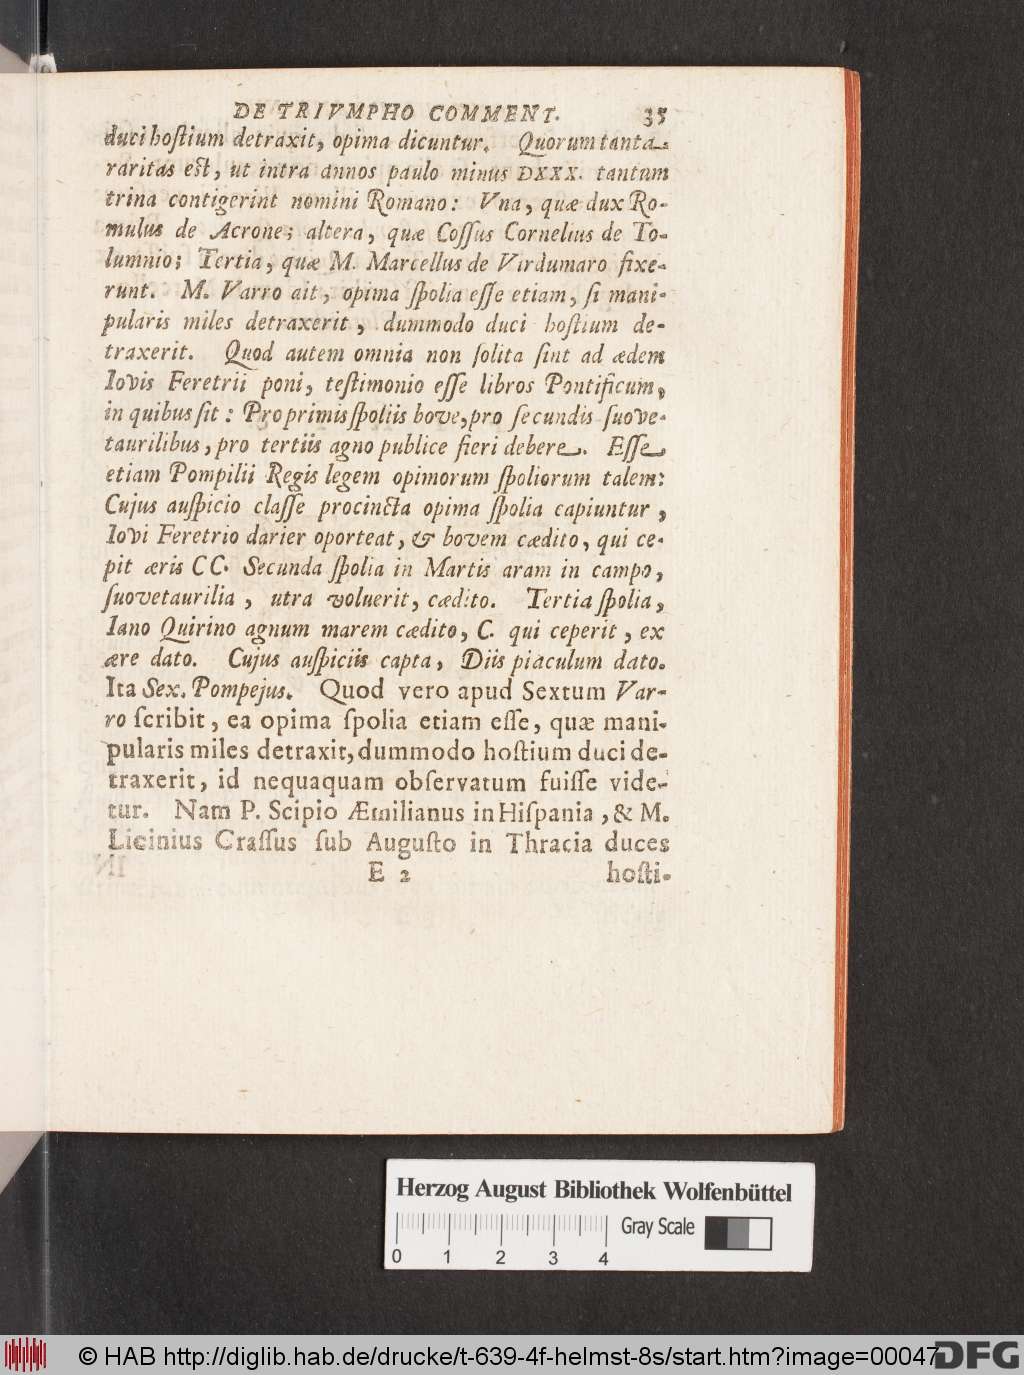 DE TRIVMPHO COMMENT. 35
duci hoſtium detraxit, opima dicuntur. Quorum tanta
raritas eſt, ut intra annos paulo minus DXXX. tantum
trina contigerint nomini Romano: Vna, quæ dux Ro-
mulus de Acrone; altera, quæ Coſſus Cornelius de To-
lumnio; Tertia, quæ M. Marcellus de Virdumaro fixe-
runt. M. Varro ait, opima ſpolia eſſe etiam, ſi mani-
pularis miles detraxerit, dummodo duci hoſtium de-
traxerit. Quod autem omnia non ſolita ſint ad ædem
Iovis Feretrii poni, teſtimonio eſſe libros Pontificum,
in quibus ſit: Pro primis ſpoliis bove, pro ſecundis ſuove-
taurilibus, pro tertiis agno publice fieri debere. Eſſe
etiam Pompilii Regis legem opimorum ſpoliorum talem:
Cujus auſpicio claſſe procincta opima ſpolia capiuntur,
Iovi Feretrio darier oporteat, & bovem cædito, qui ce-
pit æris CC. Secunda ſpolia in Martis aram in campo,
ſuovetaurilia, utra voluerit, cædito. Tertia ſpolia,
Iano Quirino agnum marem cædito, C. qui ceperit, ex
ære dato. Cujus auſpiciis capta, Diis piaculum dato.
Ita Sex. Pompejus. Quod vero apud Sextum Var-
ro ſcribit, ea opima ſpolia etiam eſſe, quæ mani-
pularis miles detraxit, dummodo hoſtium duci de-
traxerit, id nequaquam obſervatum fuiſſe vide-
tur. Nam P. Scipio Æmilianus in Hiſpania, & M.
Licinius Craſſus ſub Auguſto in Thracia duces
E 2 hoſti-
Herzog August Bibliothek Wolfenbüttel
Gray Scale
0 1 2 3 4
© HAB http://diglib.hab.de/drucke/t-639-4f-helmst-8s/start.htm?image=00047
DFG